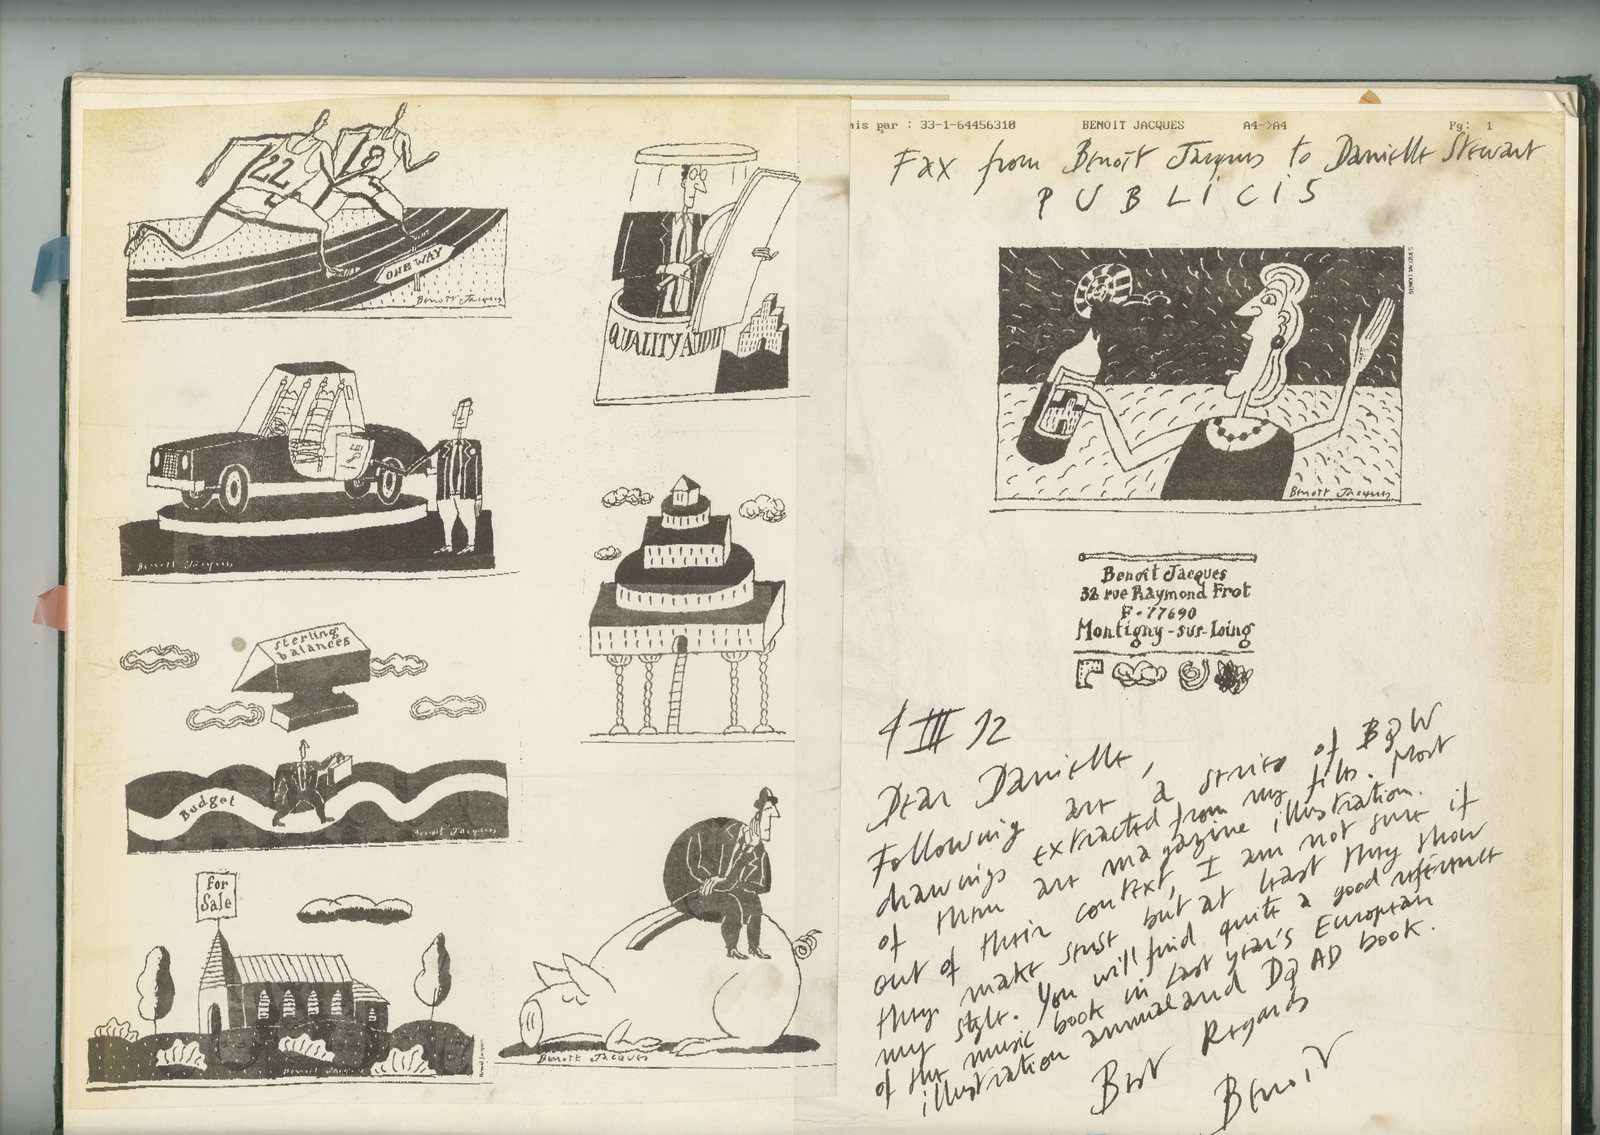 22
18
ONE WAY
Benoît Jacques
QUALITY AUDIT
Benoît Jacques
sterling
balances
Budget
Benoît Jacques
for
Sale
Benoît Jacques
Benoît Jacques
nis par : 33-1-64456310 BENOIT JACQUES A4->A4 Pg: 1
Fax from Benoît Jacques to Danielle Stewart
PUBLICIS
BENOIT JACQUES
Benoît Jacques
Benoît Jacques
32 rue Raymond Frot
F-77690
Montigny-sur-Loing
4 III 92
Dear Danielle,
Following are a series of B&W
drawings extracted from my files. Most
of them are magazine illustration.
out of their context, I am not sure if
they make sense but at least they show
my style. You will find quite a good reference
of the music book in last year's European
illustration annual and D&AD book.
Best Regards
Benoît